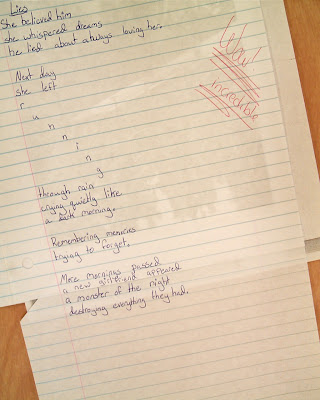 Lies
She believed him
she whispered dreams
he lied about always loving her.
Next day
she left
r
u
n
n
i
n
g
through rain
crying quietly like
a morning.
Remembering memories
trying to forget.
More mornings passed
a new girlfriend appeared
a monster of the night
destroying everything they had.
Wow!
Incredible